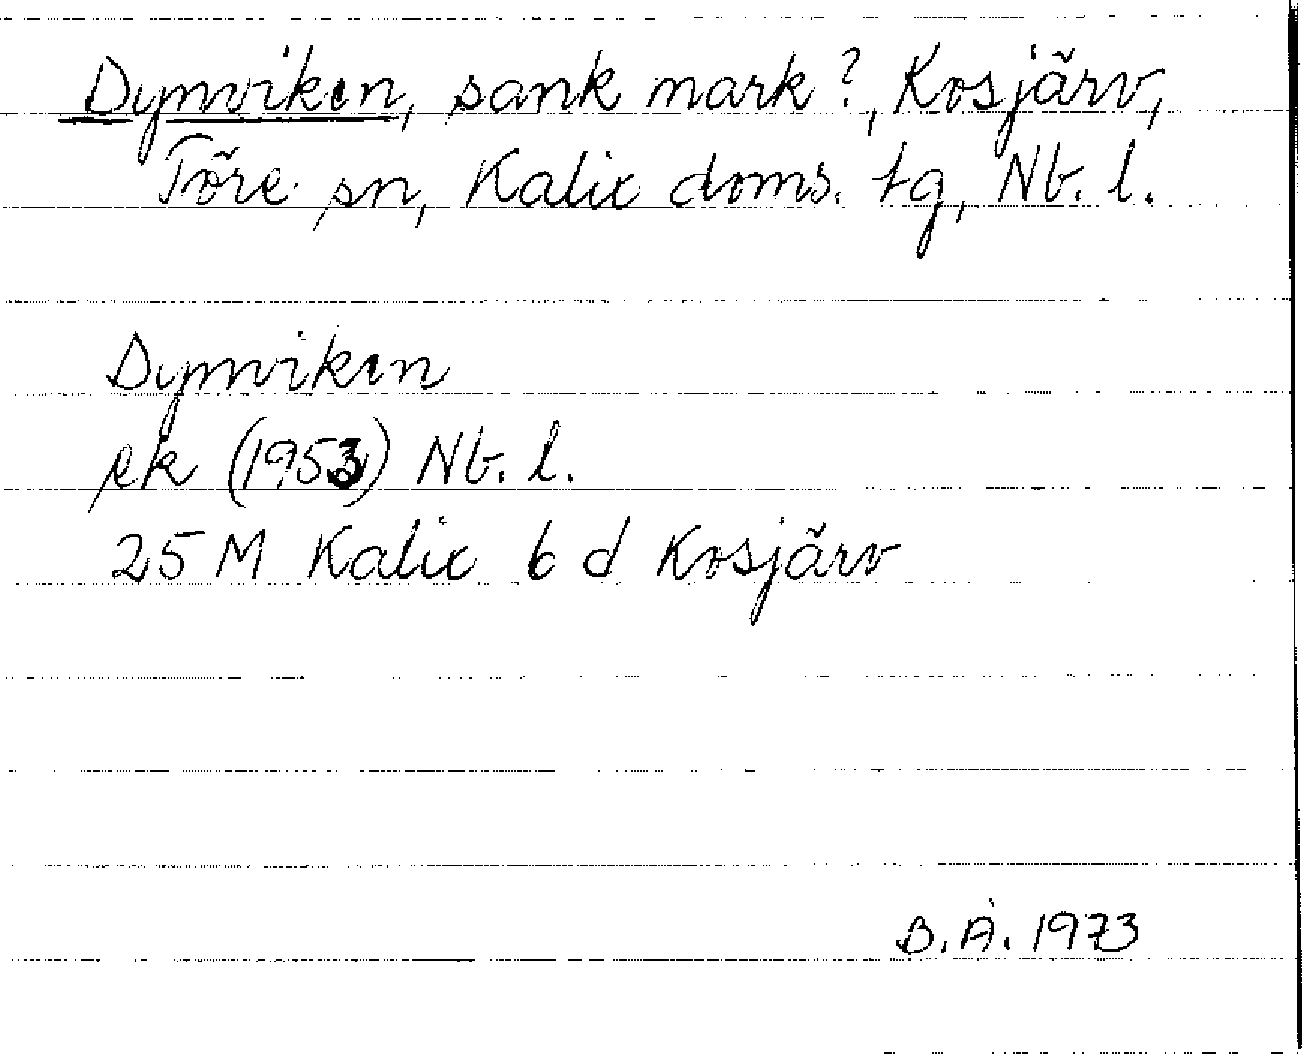 Dynviken, sank mark?, Kosjärv,
Töre sn, Kalix doms. tg, Nb. l.
Dynviken
ek (1953) Nb. l.
25 M Kalix 6 d Kosjärv
B.Å. 1973